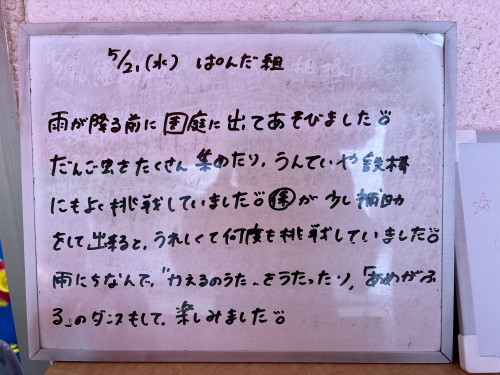 5/21(水) ぱんだ組
雨が降る前に園庭に出てあそびました♡
だんご虫をたくさん集めたり、うんていや鉄棒
にもよく挑戦していました♡㋿が少し補助
をして出来ると、うれしくて何度も挑戦していました♡
雨にちなんで、"かえるのうた"をうたったり、「あめがふ
る」のダンスもして、楽しみました♡